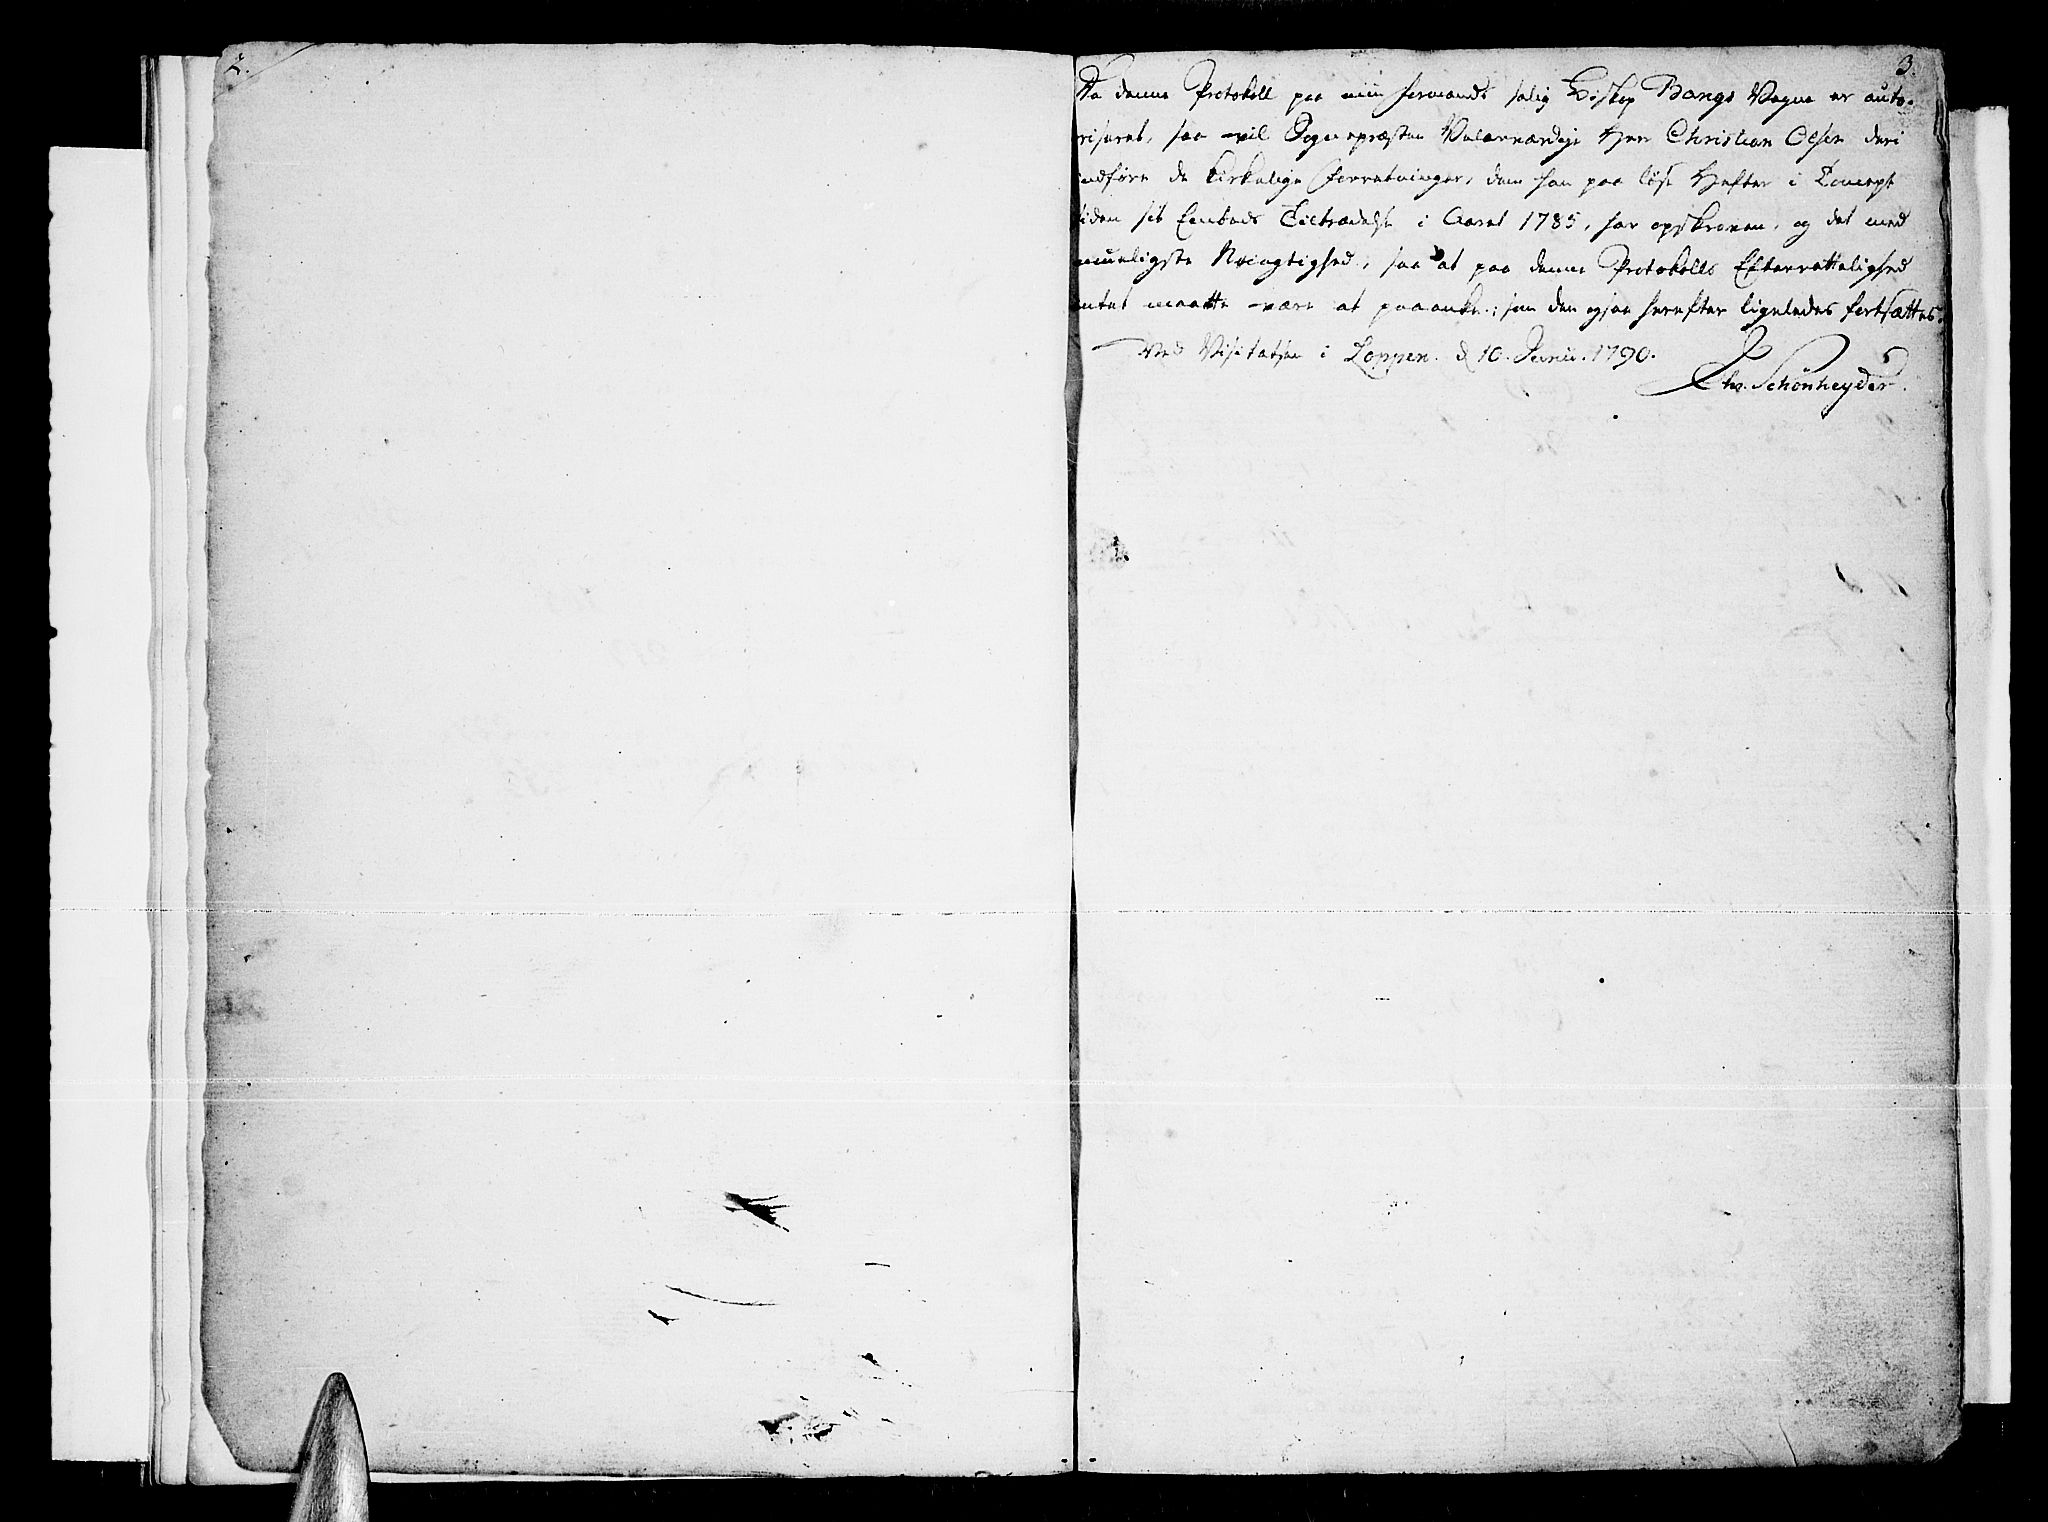 2.
3.
Da denne Protokoll paa min Formands salig Biskop Bangs Vegne er auto-
riseret, saa vil Sognepræsten Velærværdige Herr Christian Olsen deri
indføre de kirkelige Forretninger, dem han paa løse Hefter i Concept
siden sit Embeds Tiltrædelse i Aaret 1785, har opskreven, og det med
mueligste Nøiagtighed, saa at paa denne Protokolls Efterrettelighed
intet maatte være at paaanke; som den ogsaa herefter ligeledes fortsættes.
Ved Visitatsen i Loppen. d 10. Junii. 1790.
Chr. Schönheyder.